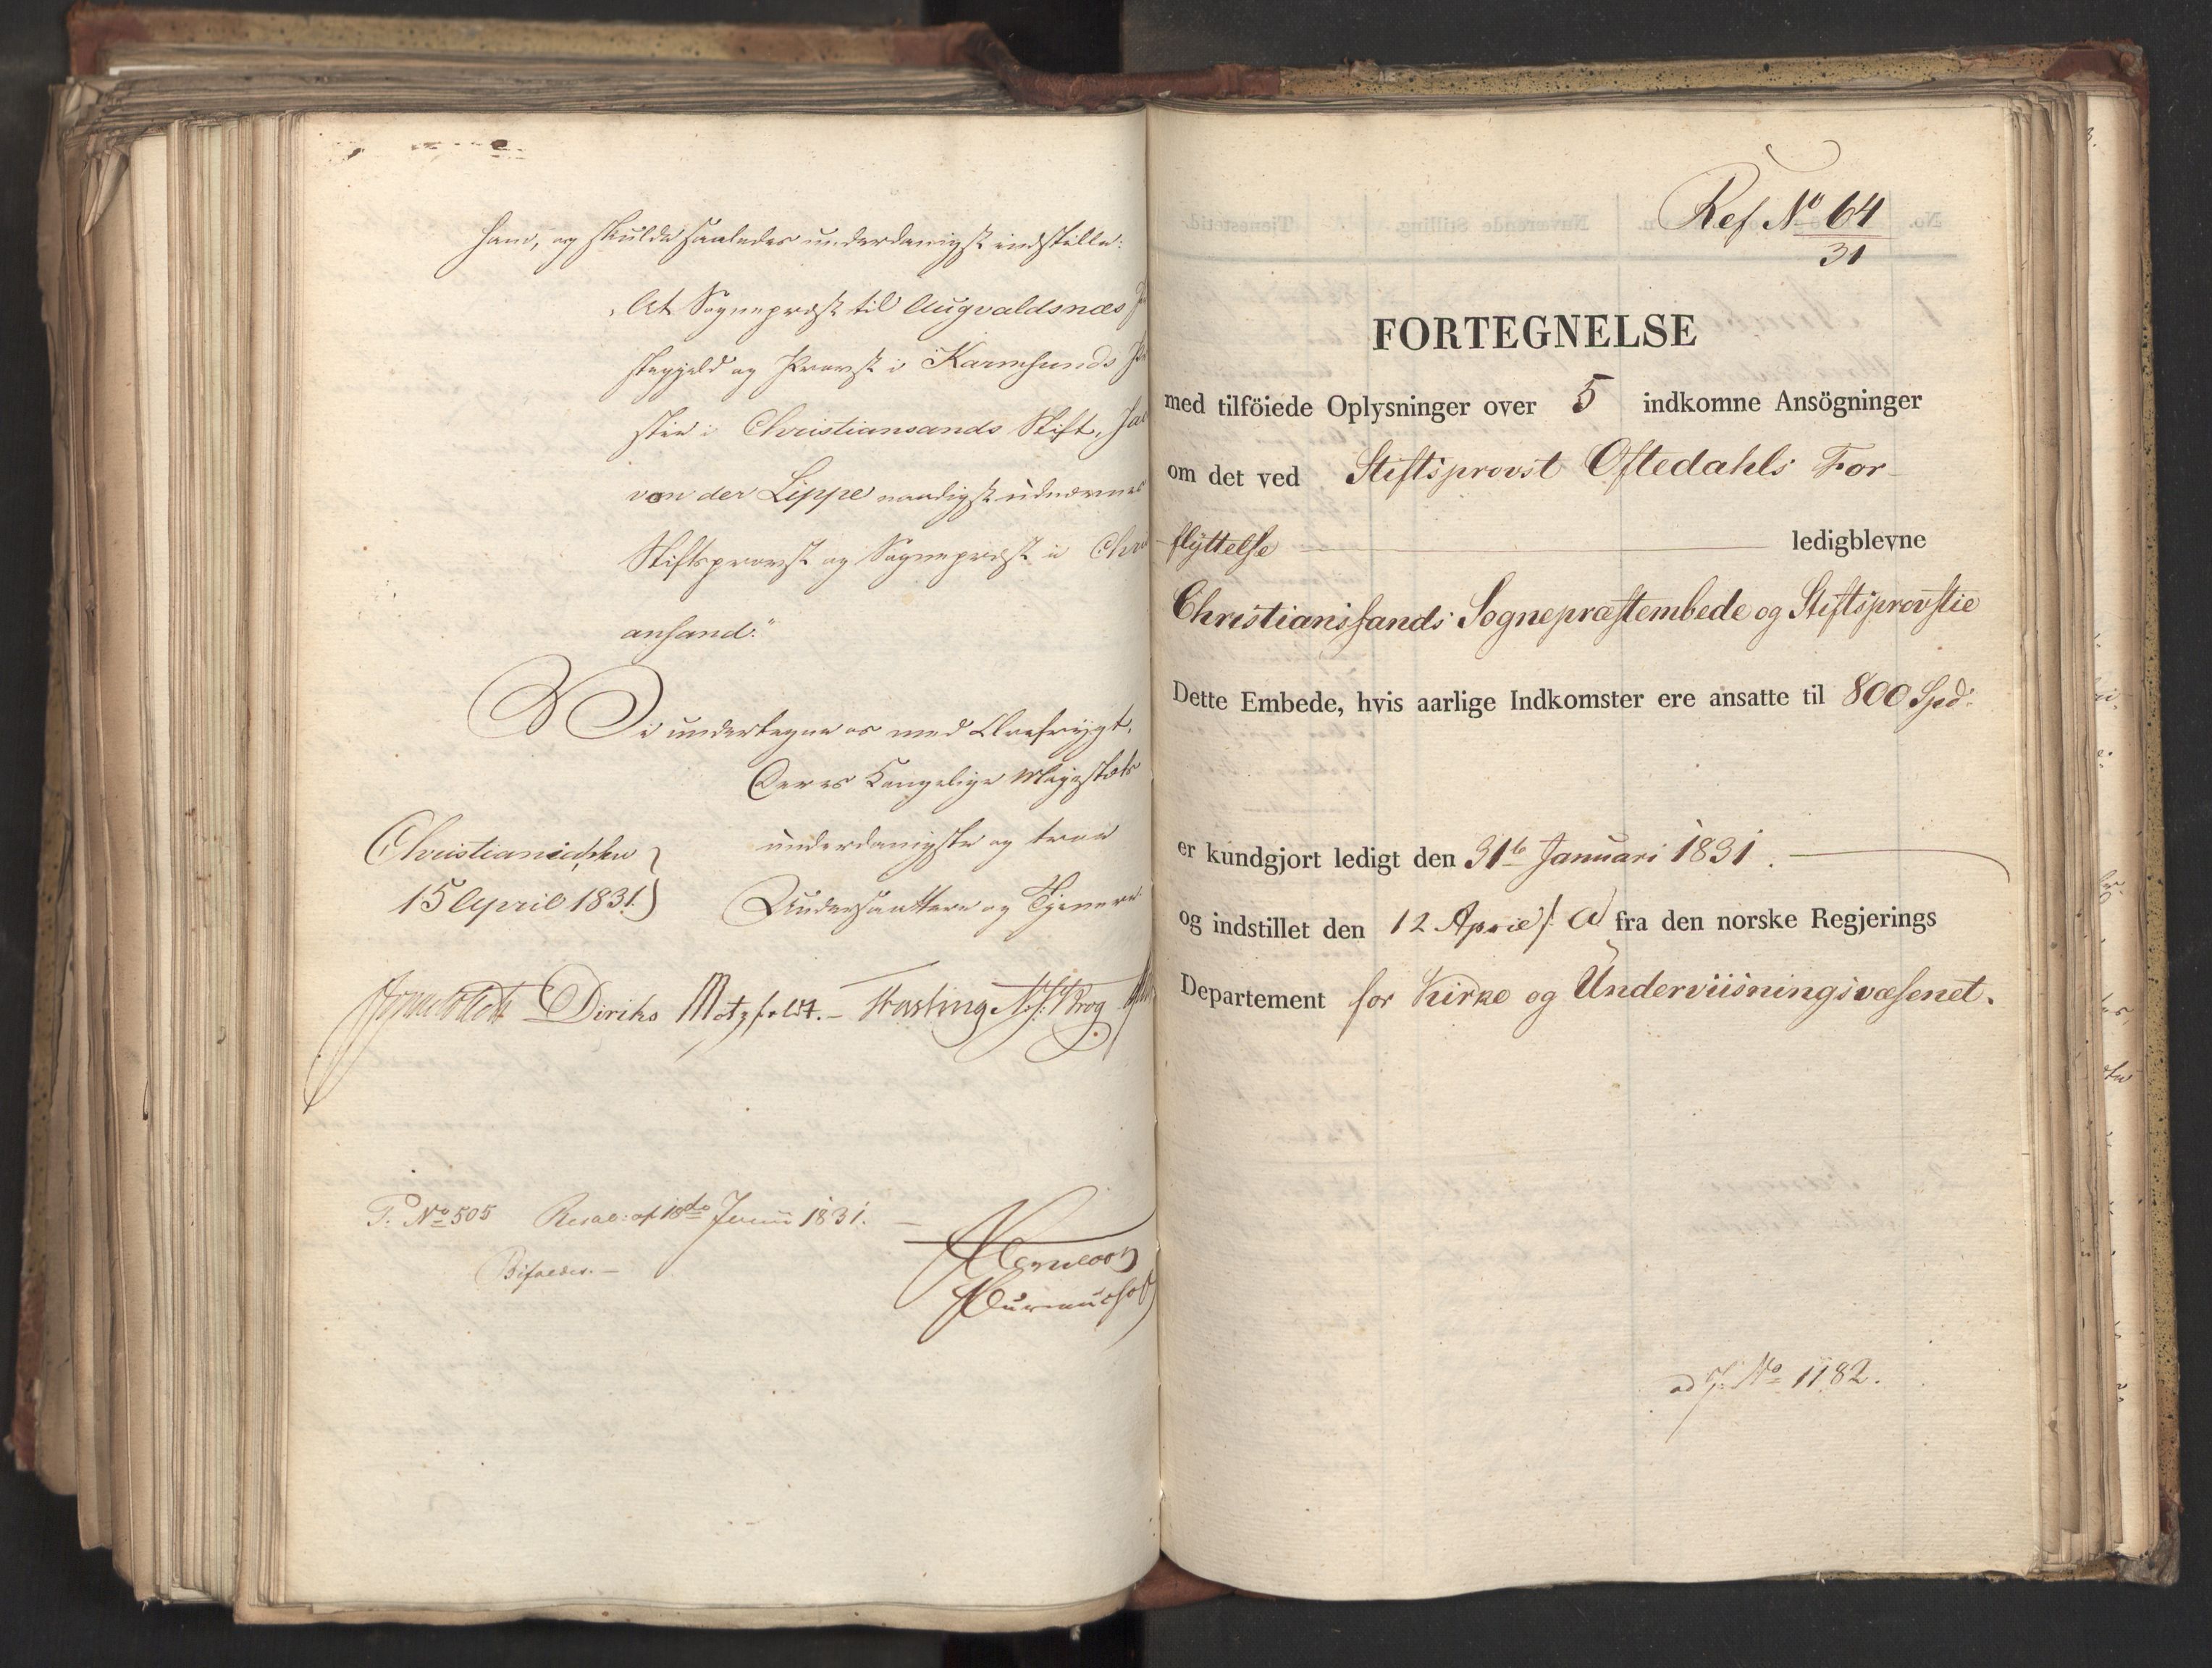 ham, og skulde saaledes underdanigst indstille:
"At Sognepræst til Augvaldsnæs
stegjeld og Provst i Karmsunds
stie i Christiansands Stift, Jac
von der Lippe naadigst udnævnes
Stiftsprovst og Sognepræst i Chri
ansand."
Vi undertegne os med Ærefrygt,
Deres Kongelige Majestæts
underdanigste og troe
Undersaattere og Tjenere
Christiania den
15 April 1831.
Diriks Motzfeldt.– Fasting N: Krog
P. No 505 Resol: af 18de Junii 1831. –
Bifaldes. –
Ref No 64
31
FORTEGNELSE
med tilföiede Oplysninger over 5 indkomne Ansögninger
om det ved Stiftsprovst Oftedahls For-
flyttelse ledigblevne
Christianssands Sognepræstembede og Stiftsprovstie
Dette Embede, hvis aarlige Indkomster ere ansatte til 800 Spd:
er kundgjort ledigt den 31te Januari 1831.
og indstillet den 12 April s. A. fra den norske Regjerings
Departement for Kirke og Underviisningsvæsenet.
ad J. No 1182.